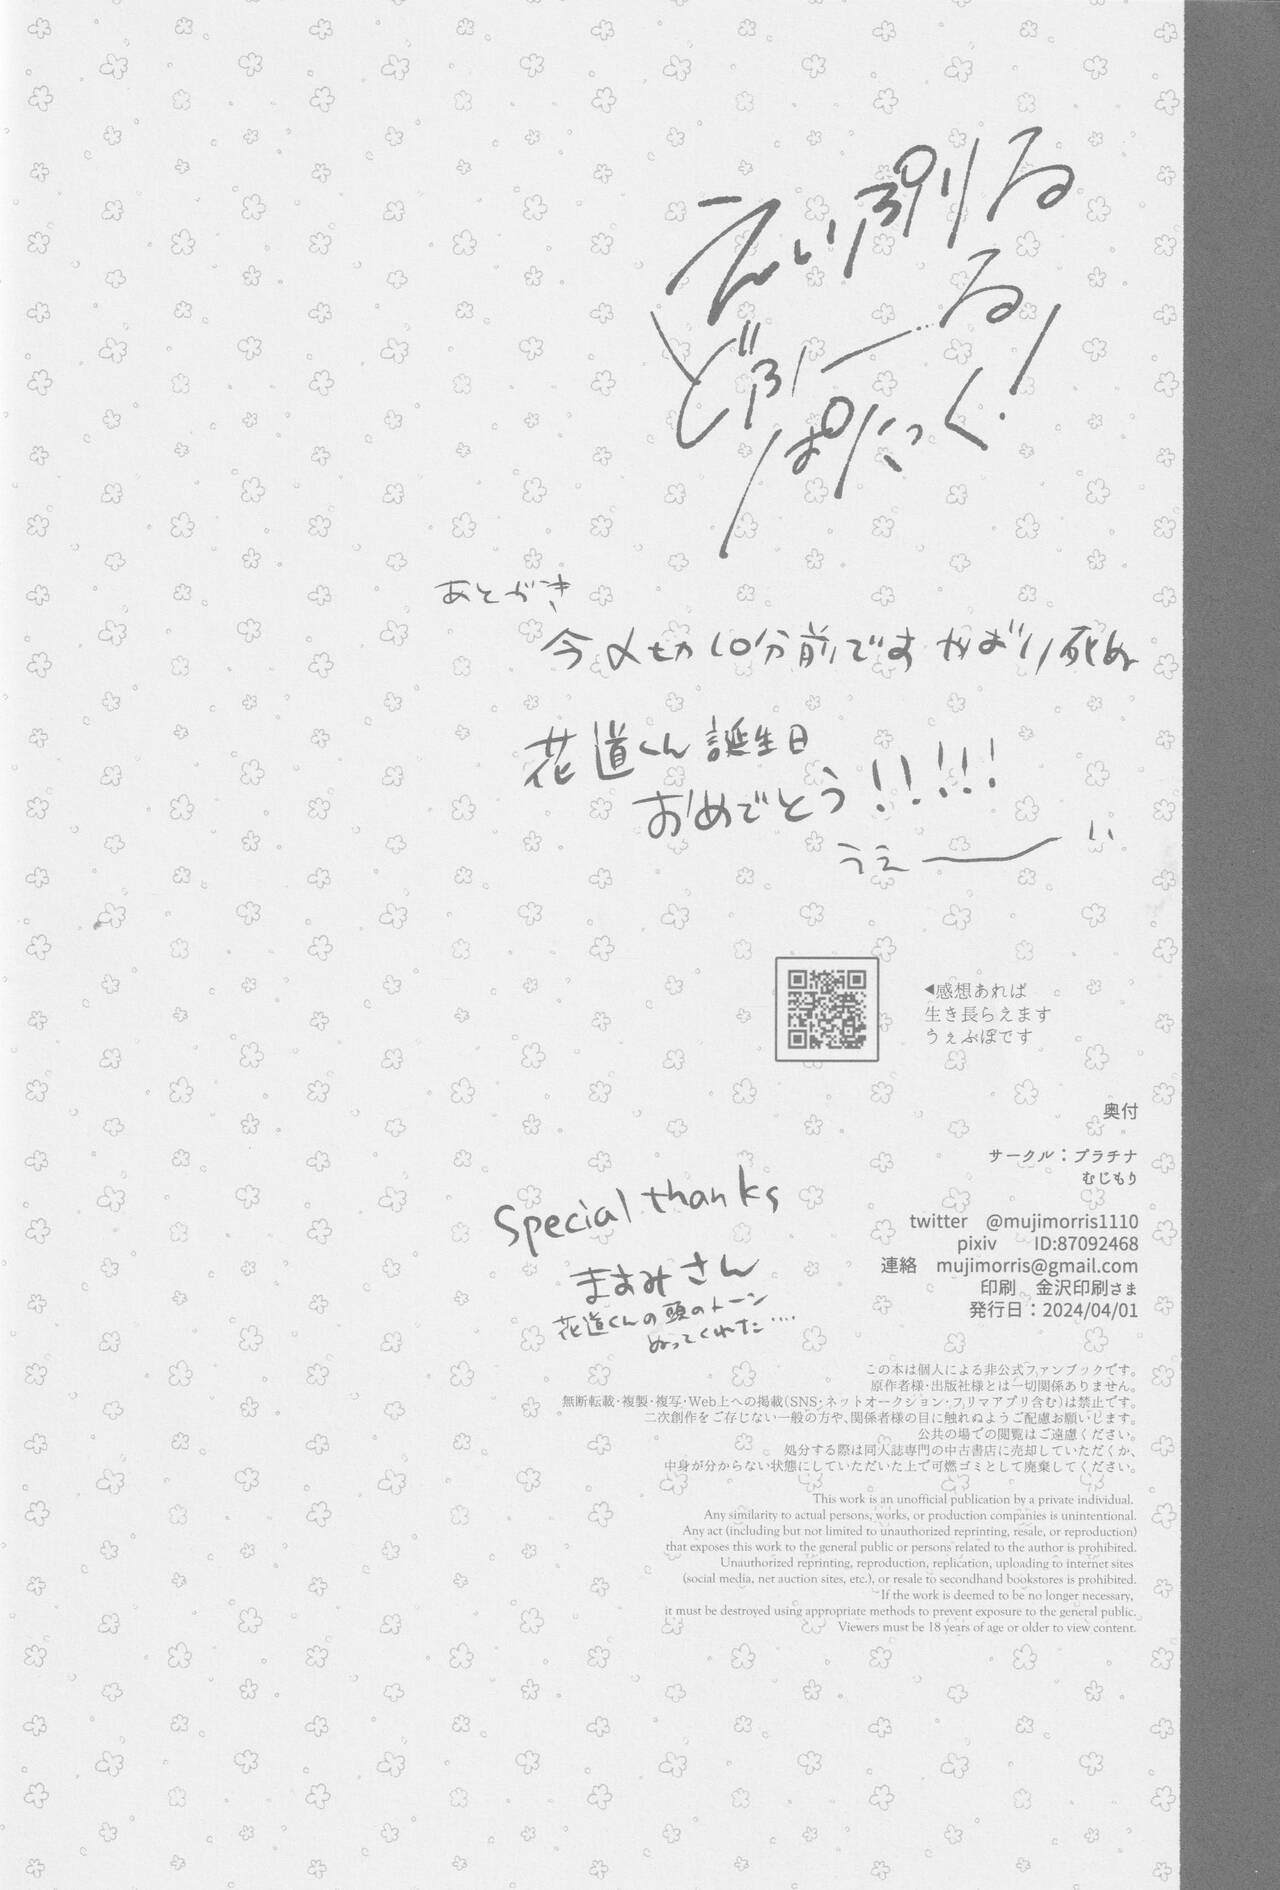 えいぷりる
どふー…る
ぱにっく!
あとがき
今〆切10分前です やばい死ぬ
花道くん誕生日
おめでとう!!!!!
うえーい
◀感想あれば
生き長らえます
うぇぶぼです
奥付
サークル：プラチナ
むじもり
twitter @mujimorris1110
pixiv ID:87092468
連絡 mujimorris@gmail.com
印刷 金沢印刷さま
発行日：2024/04/01
Special thanks
まおみさん
花道くんの頭のトーン
ぬってくれた....
この本は個人による非公式ファンブックです。
原作者様・出版社様とは一切関係ありません。
無断転載・複製・複写・Web上への掲載(SNS・ネットオークション・フリマアプリ含む)は禁止です。
二次創作をご存じない一般の方や、関係者様の目に触れぬようご配慮お願いします。
公共の場での閲覧はご遠慮ください。
処分する際は同人誌専門の中古書店に売却していただくか、
中身が分からない状態にしていただいた上で可燃ゴミとして廃棄してください。
This work is an unofficial publication by a private individual.
Any similarity to actual persons, works, or production companies is unintentional.
Any act (including but not limited to unauthorized reprinting, resale, or reproduction)
that exposes this work to the general public or persons related to the author is prohibited.
Unauthorized reprinting, reproduction, replication, uploading to internet sites
(social media, net auction sites, etc.), or resale to secondhand bookstores is prohibited.
If the work is deemed to be no longer necessary,
it must be destroyed using appropriate methods to prevent exposure to the general public.
Viewers must be 18 years of age or older to view content.